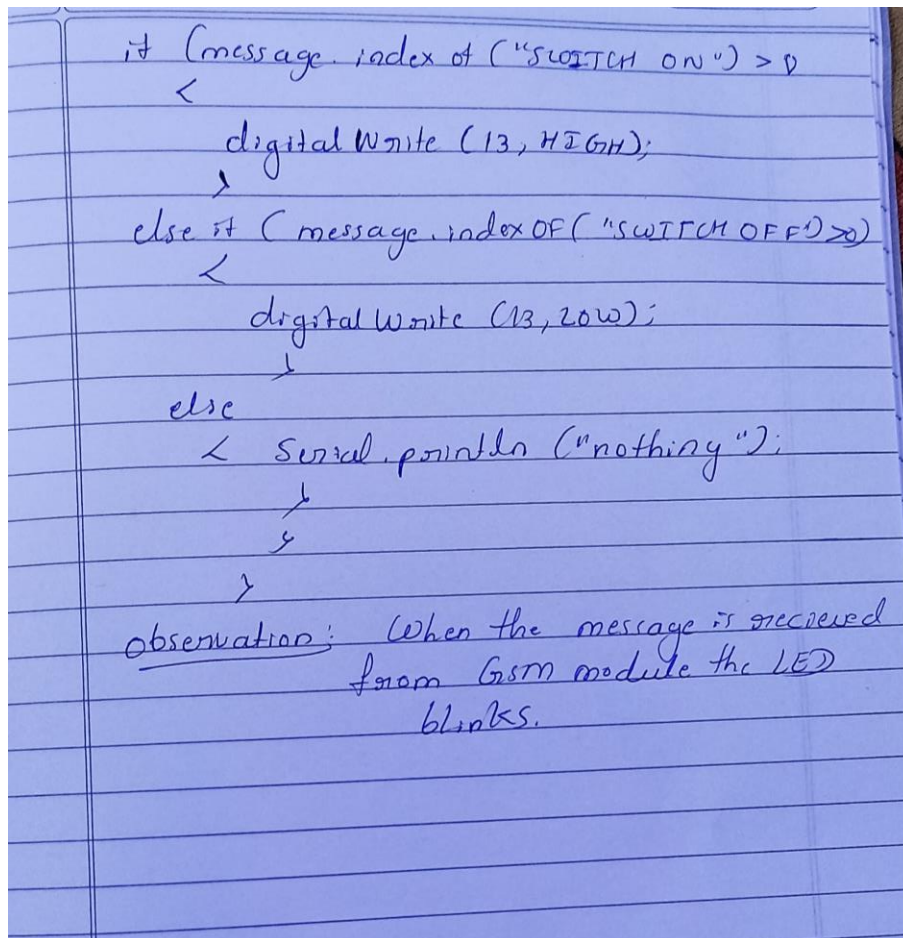 if (message. index of ("SWITCH ON") > 0
{
digital Write (13, HIGH);
}
else if ( message. index OF ( "SWITCH OFF") >0)
{
digital Write (13, LOW);
}
else
{ Serial. println ("nothing");
}
}
}
observation: When the message is recieved
from GSM module the LED
blinks.